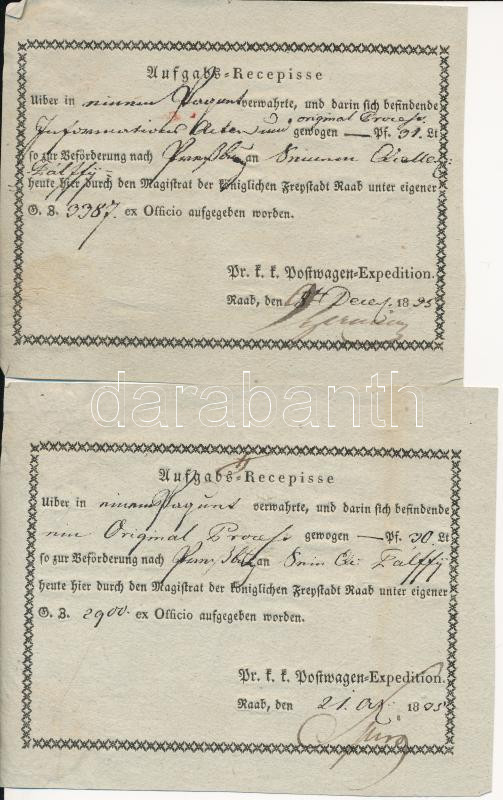 Aufgabs-Recepisse
Uiber in einem Paquet verwahrte, und darin sich befindende
original Process
Informations Acten und gewogen — Pf. 31. Lt
so zur Beförderung nach Preßburg an Seine
Pálffy
heute hier durch den Magistrat der königlichen Freystadt Raab unter eigener
G. Z. 3387. ex Officio aufgegeben worden.
Pr. k. k. Postwagen-Expedition.
Raab, den Decem. 1835
darabanth
Aufgabs-Recepisse
Uiber in einem Paquet verwahrte, und darin sich befindende
ein Original Process gewogen — Pf. 30 Lt
so zur Beförderung nach Preßburg an Pálffy
heute hier durch den Magistrat der königlichen Freystadt Raab unter eigener
G. Z. 2900. ex Officio aufgegeben worden.
Pr. k. k. Postwagen-Expedition.
Raab, den 21. Oct 1835